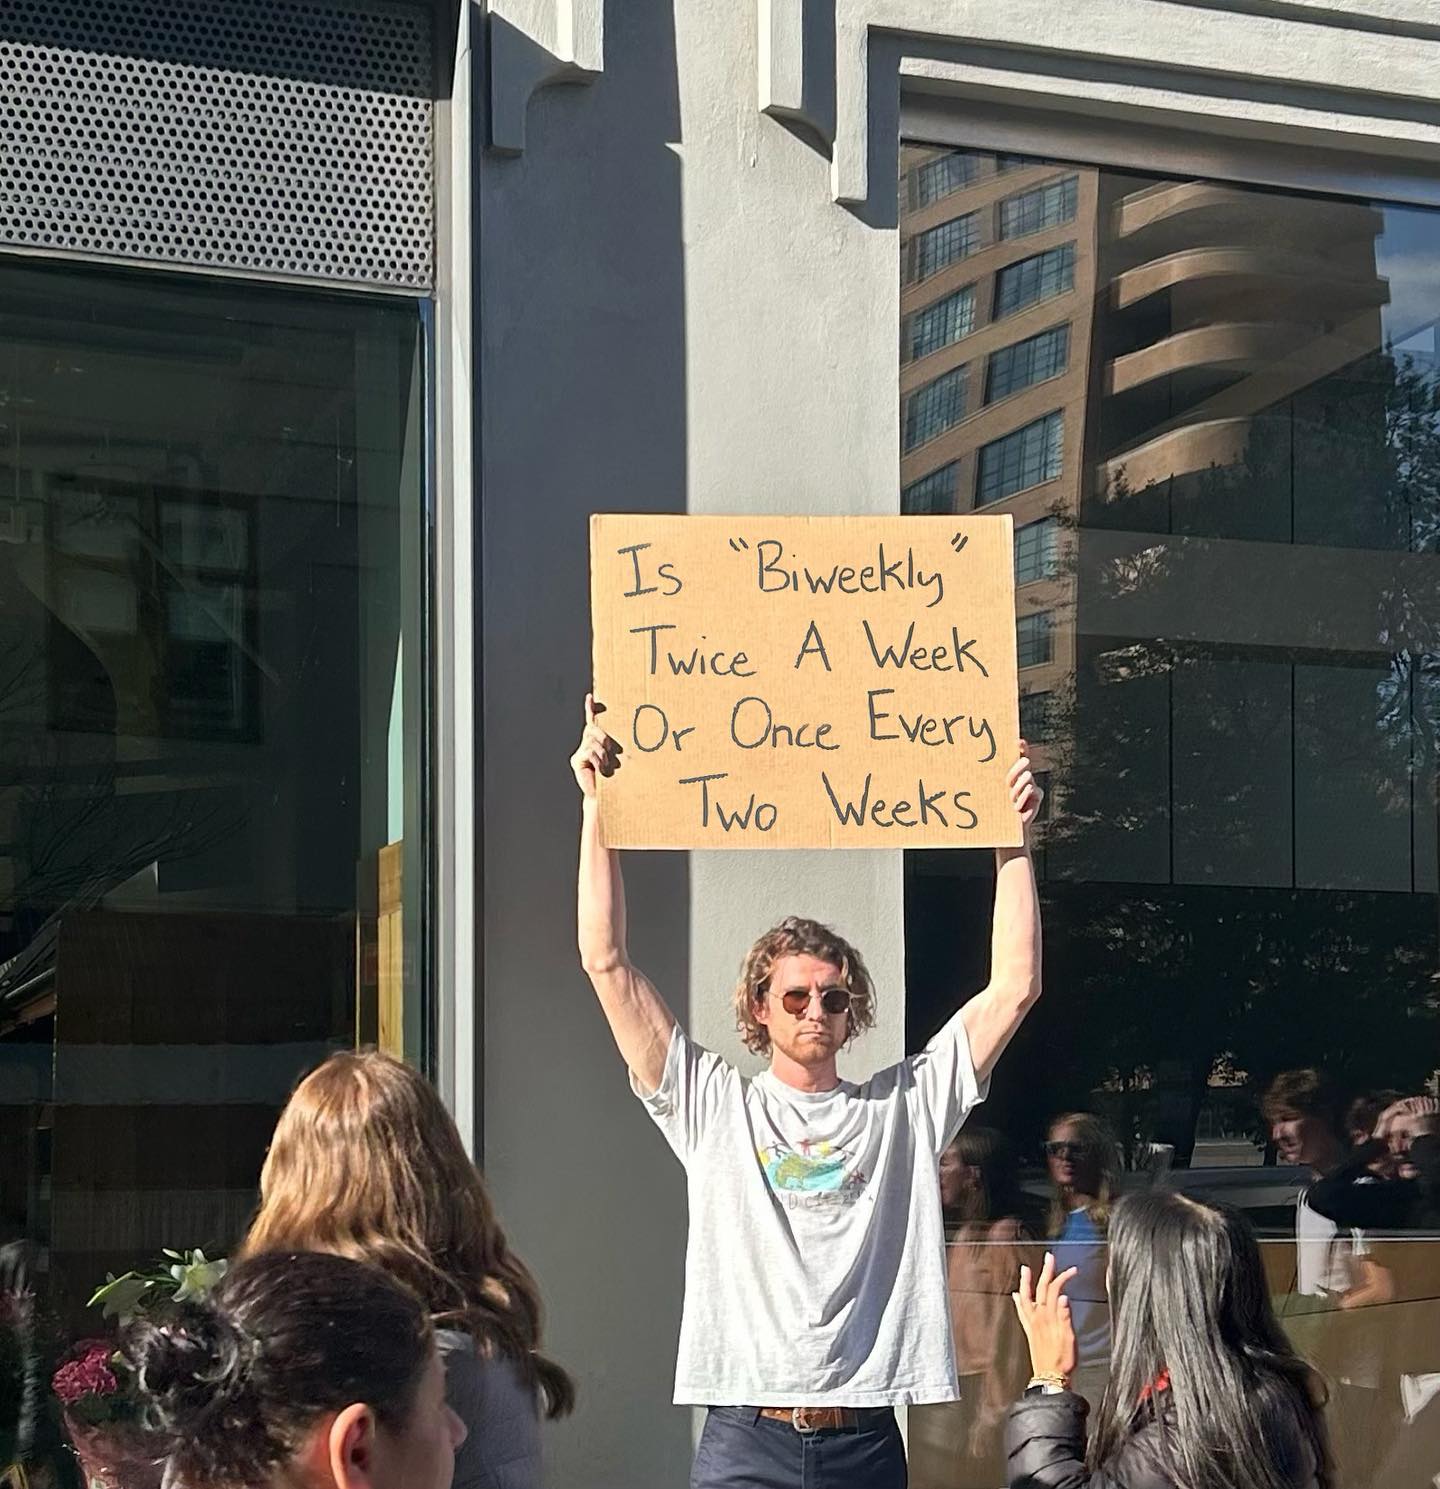 Is “Biweekly”
Twice A Week
Or Once Every
Two Weeks